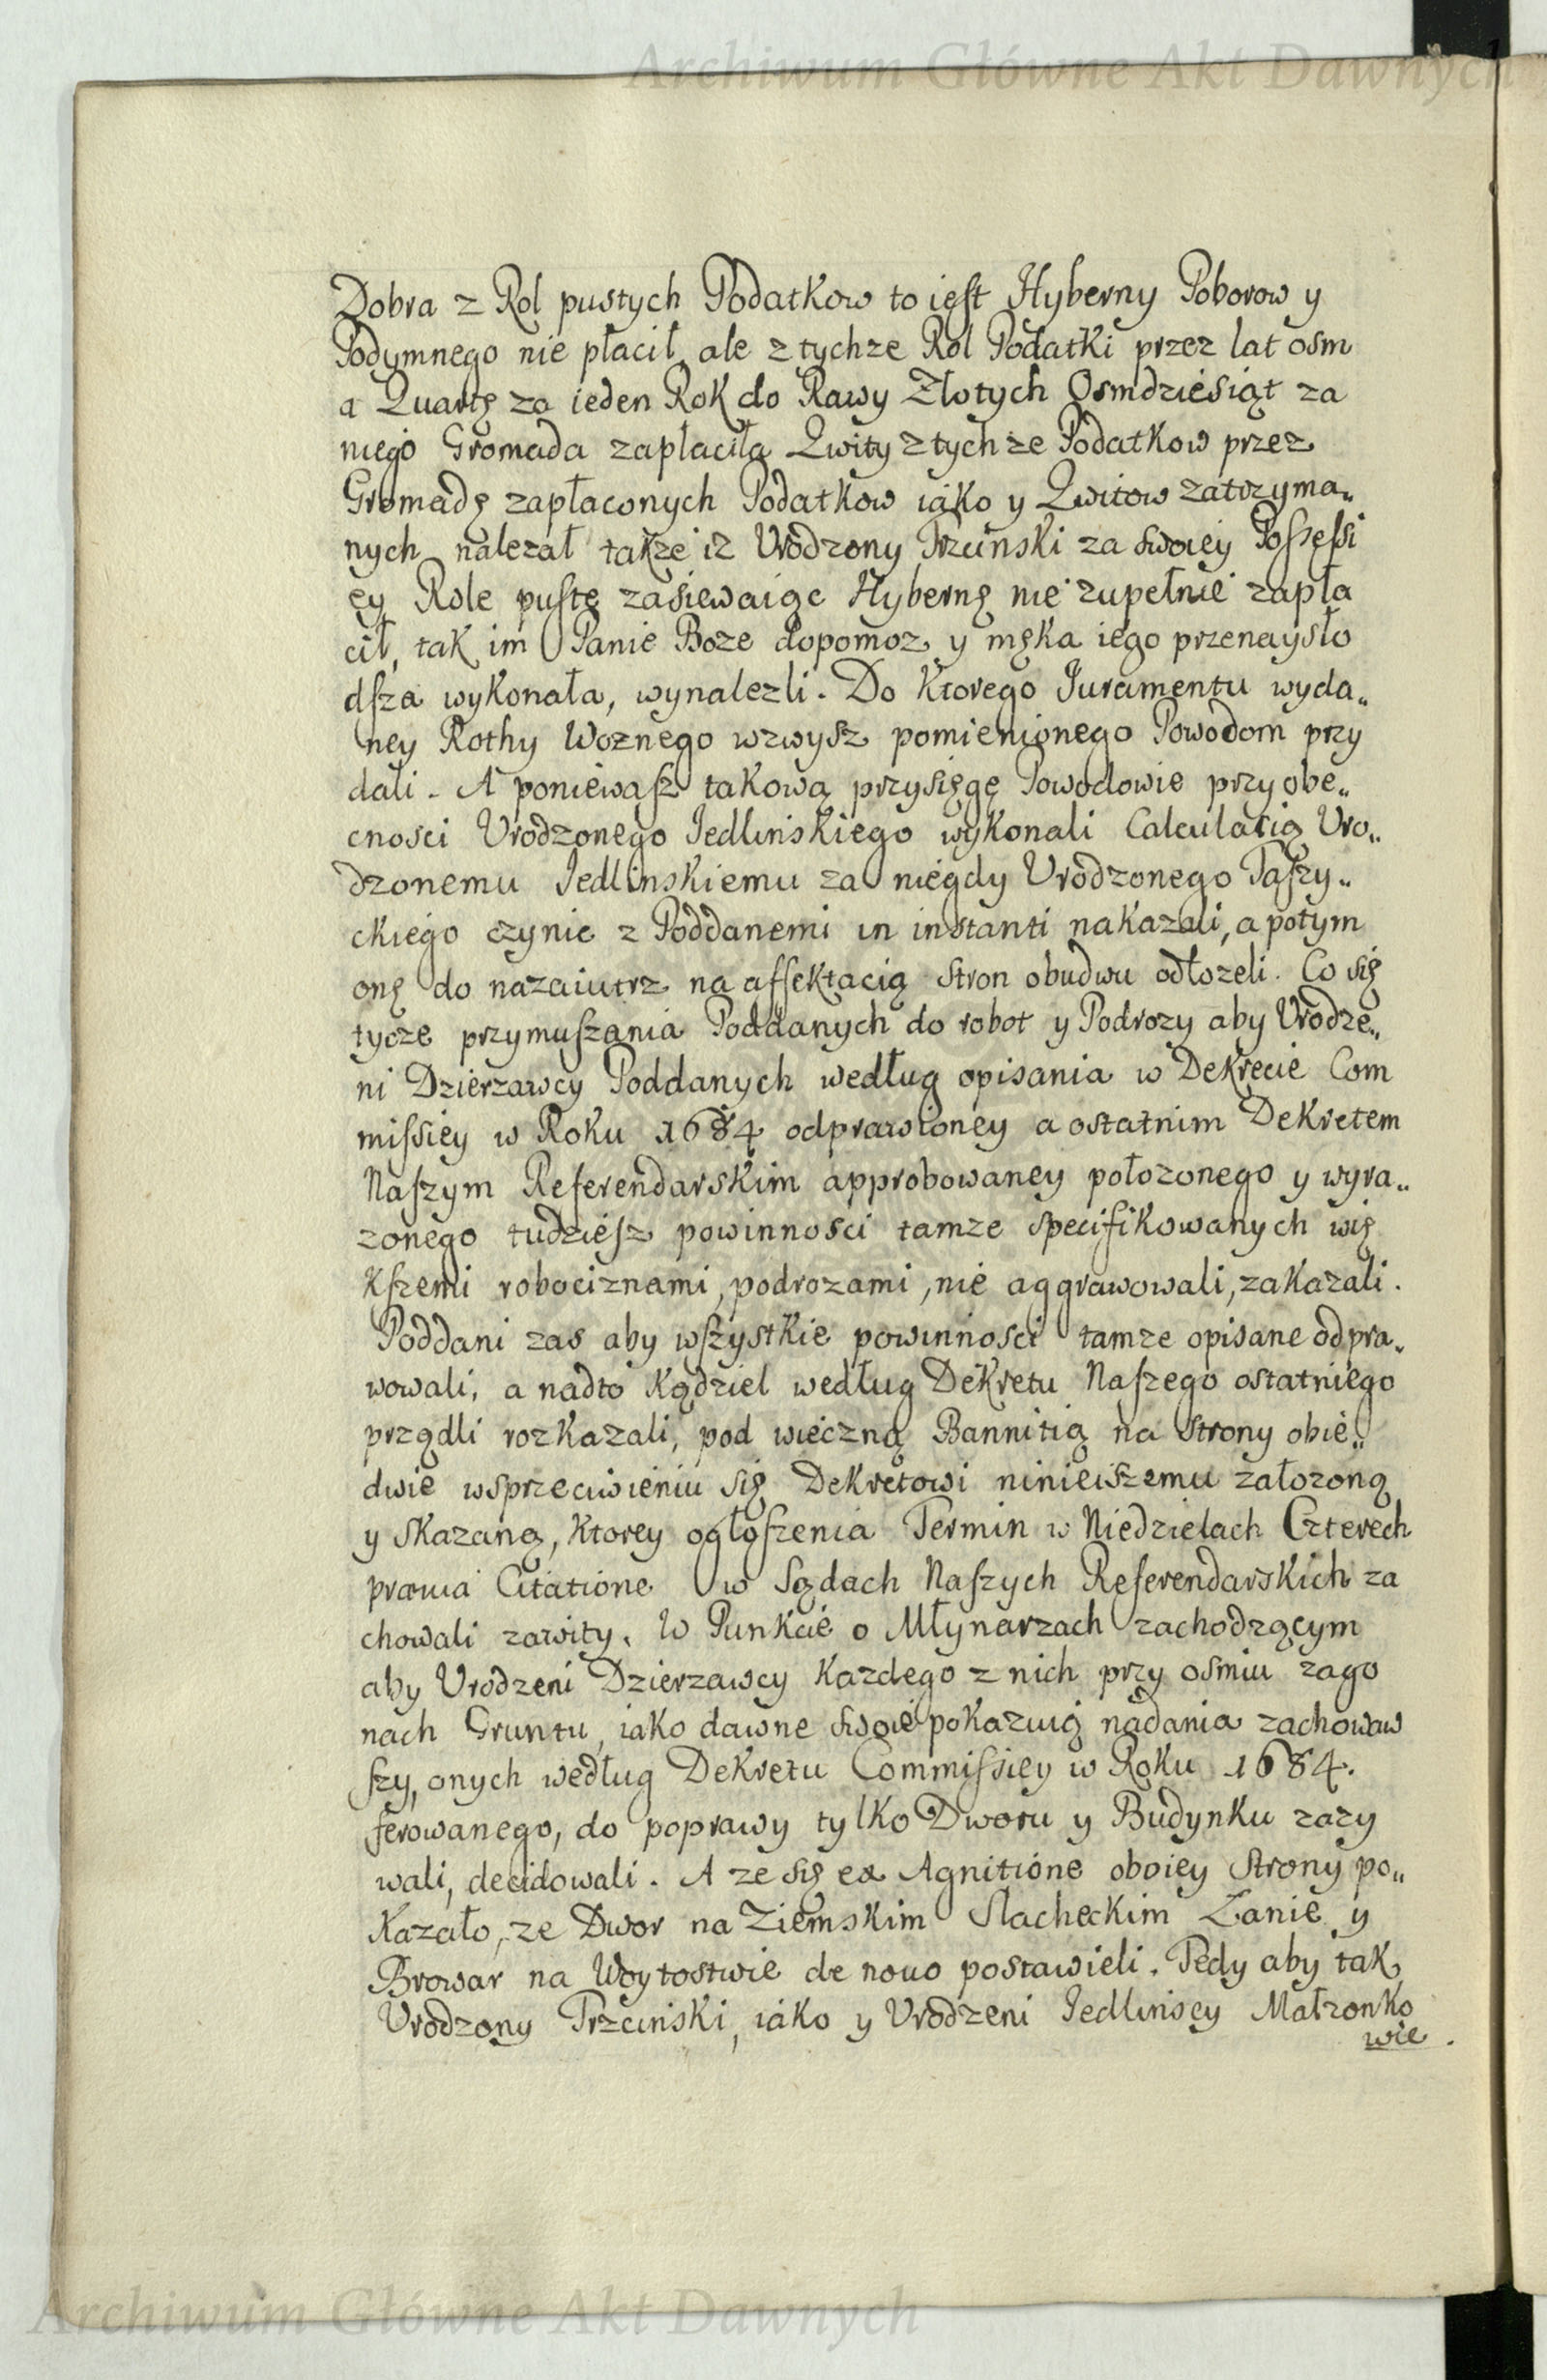 Archiwum Główne Akt Dawnych
Dobra z Rol pustych Podatkow to iest Hyberny Poborow y
Podymnego nie płacił, ale z tychze Rol Podatki przez lat osm
a Quartę za ieden Rok do Rawy Złotych Osmdziesiąt za
niego Gromada zapłaciła Qwity z tychze Podatkow przez
Gromadę zapłaconych Podatkow iako y Qwitow zatrzyma„
nych nalezał takze iz Urodzony Trzcinski za swoiey Possessi
ey Role puste zasiewaiąc Hybernę nie zupełnie zapła
cił, tak im Panie Boze dopomoz y męka iego przenaysło
dsza wykonała, wynalezli. Do Ktorego Iuramentu wyda„
ney Rothy Woznego wzwysz pomienionego Powodom przy
dali. A poniewasz takową przysięgę Powodowie przy obe„
cnosci Urodzonego Iedlinskiego wykonali Calculatią Uro„
dzonemu Iedlinskiemu za niegdy Urodzonego Taszy„
ckiego czynic z Poddanemi in instanti nakazali, a potym
onę do nazaiutrz na affektacią stron obudwu odłozeli. Co się
tycze przymuszania Poddanych do robot y Podrozy aby Urodze„
ni Dzierzawcy Poddanych według opisania w Dekrecie Com
missiey w Roku 1684 odprawioney a ostatnim Dekretem
Naszym Referendarskim approbowaney połozonego y wyra„
zonego tudziesz powinnosci tamze specifikowanych wię
kszemi robociznami, podrozami, nie aggrawowali, zakazali.
Poddani zas aby wszystkie powinnosci tamze opisane odpra„
wowali, a nadto Kądziel według Dekretu Naszego ostatniego
przędli rozkazali, pod wieczną Bannitią na Strony obie„
dwie wsprzeciwieniu się Dekretowi ninieiszemu załozoną
y skazaną, Ktorey ogłoszenia Termin w Niedzielach Czterech
prævia Citatione w Sądach Naszych Referendarskich za
chowali zawity. W Punkcie o Młynarzach zachodzącym
aby Urodzeni Dzierzawcy Kazdego z nich przy osmiu zago
nach Gruntu, iako dawne swoie pokazuią nadania zachowaw
szy, onych według Dekretu Commissiey w Roku 1684.
ferowanego, do poprawy tylko Dworu y Budynku zazy
wali, decidowali. A ze się ex Agnitione oboiey Strony po„
Kazało, ze Dwor na Ziemskim Slacheckim Łanie y
Browar na Woytostwie de nouo postawieli. Tedy aby tak
Urodzony Trzcinski, iako y Urodzeni Iedlinscy Małzonko
wie.
Archiwum Główne Akt Dawnych